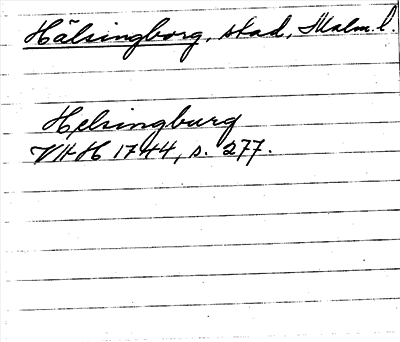 Hälsingborg, stad, Malm. l.
Helsingburg
VHH 1744, s. 277.